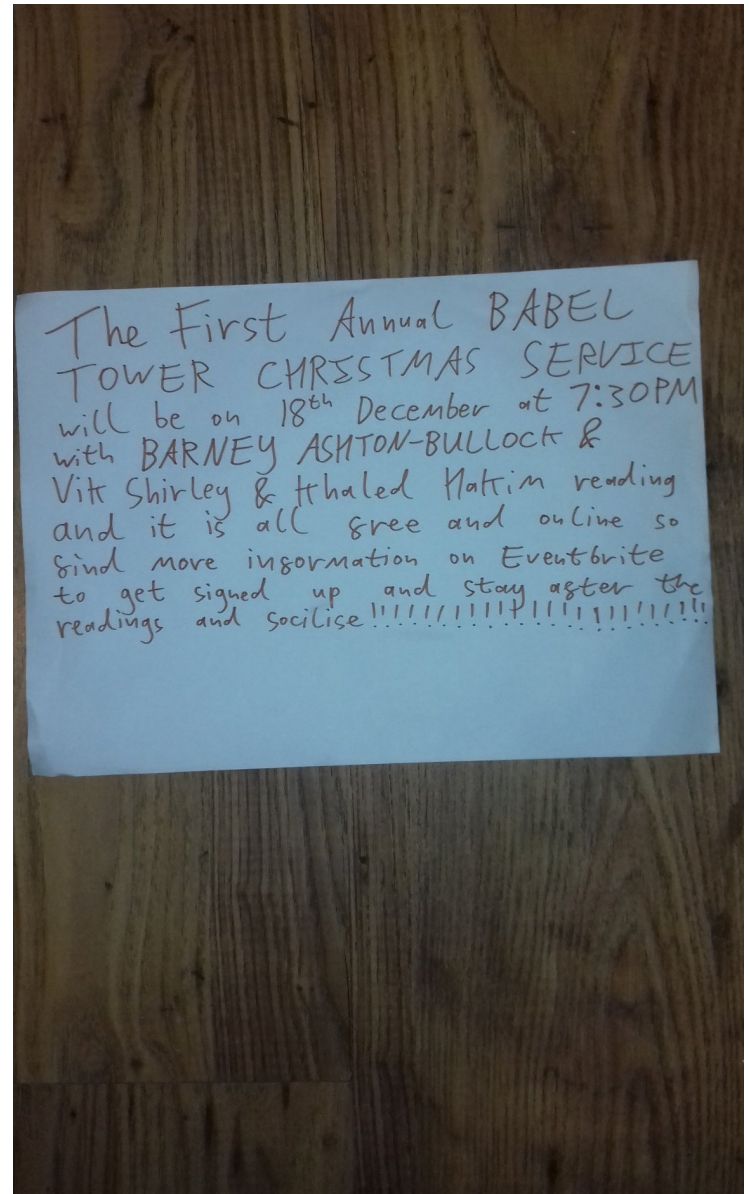 The First Annual BABEL
TOWER CHRISTMAS SERVICE
will be on 18th December at 7:30PM
with BARNEY ASHTON-BULLOCK &
Vik Shirley & Khaled Hakim reading
and it is all free and online so
find more information on Eventbrite
to get signed up and stay after the
readings and socilise!!!!!!!!!!!!!!!!!!!!!!!!